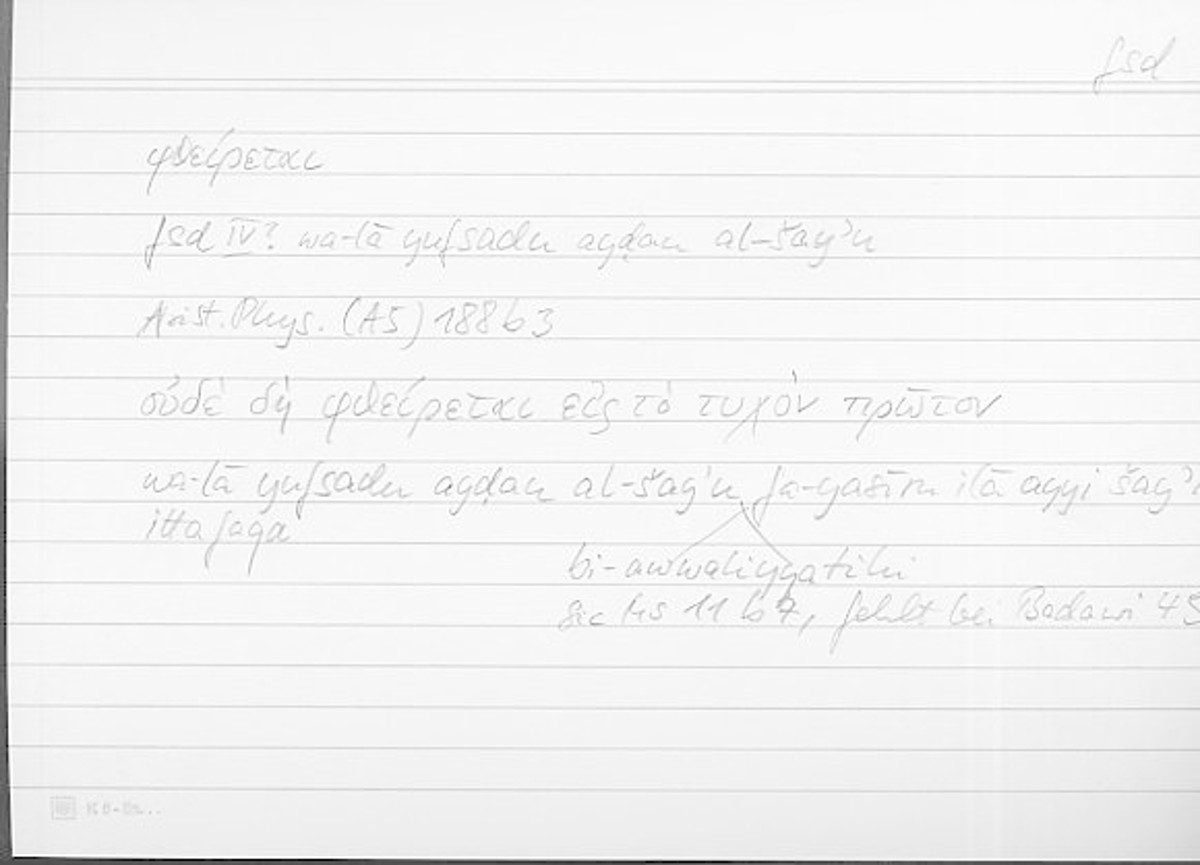 fsd
φθείρεται
fsd IV? wa-lā yufsadu ayḍan al-šayʾu
Arist. Phys. (A5) 188 b 3
οὐδὲ δὴ φθείρεται εἰς τὸ τυχὸν πρῶτον
wa-lā yufsadu ayḍan al-šayʾu fa-yaṣīru ilā ayyi šayʾ
ittafaqa
bi-awwaliyyatihi
sic Ms 11 b 7, fehlt bei Badawi 45